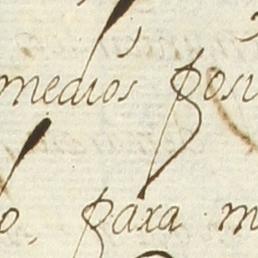 medios posi
o, para m